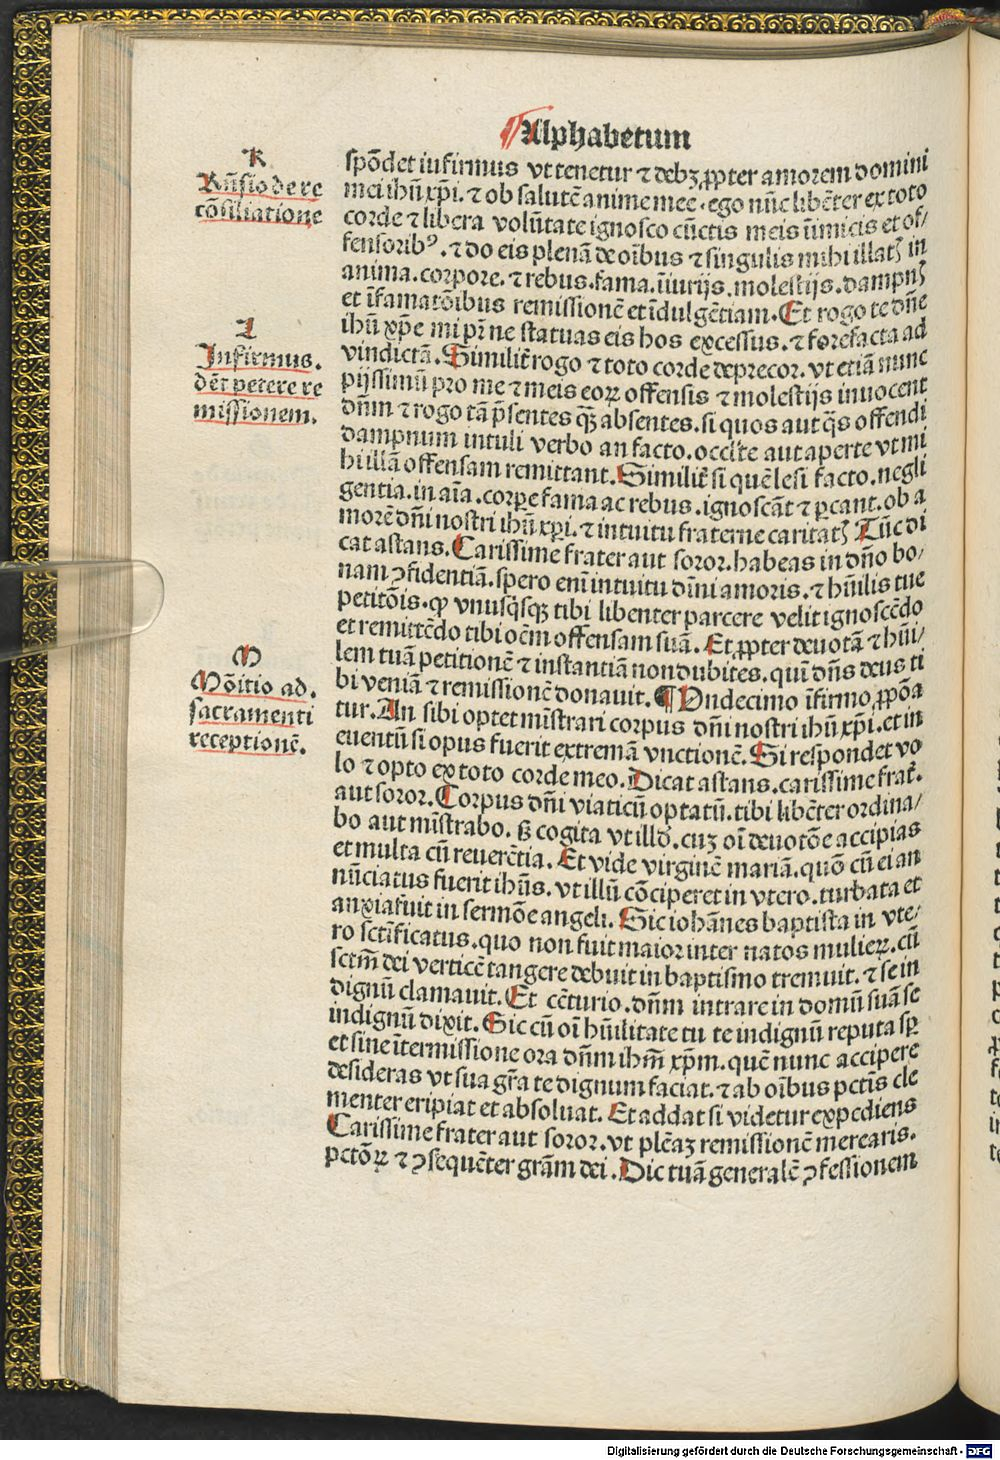 Alphabetum
K
Rñsio de re
cōsiliatione
L
Infirmus.
dēt petere re
missionem.
M
Mōitio ad.
sacramenti
receptionē.
spōdet iufirmus vt tenetur ⁊ debꝫ ꝓpter amorem domini
mei ihū xp̄i. ⁊ ob salutē anime mee. ego nūc libēter ex toto
corde ⁊ libera volūtate ignosco cūctis meis īimicis et of/
fensoribꝰ. ⁊ do eis plenā de oībus ⁊ singulis mihi illatꝭ in
anima. corpore. ⁊ rebus. fama. īiurijs. molestijs. dampnꝭ
et īfamatōibus remissionē et īdulgētiam. Et rogo te dn̄e
ihū xp̄e mi pr̄ ne statuas eis hos excessus. ⁊ forefacta ad
vindictā. Similit̄ rogo ⁊ toto corde deprecor. vt etiā nunc
pijssimū pro me ⁊ meis eoꝝ offensis ⁊ molestijs inuocent
dn̄m ⁊ rogo tā p̄sentes qꝫ absentes. si quos aut q̄s offendi
dampnum intuli verbo an facto. occl̄te aut aperte vt mi
hi illā offensam remittant. Similit̄ si quē lesi facto. negli
gentia. in aīa. corꝑe fama ac rebus. ignoscāt ⁊ ꝑcant. ob a
morē dn̄i nostri ihū xp̄i. ⁊ intuitu fraterne caritatꝭ Tūc di
cat astans. Carissime frater aut soror. habeas in dn̄o bo/
nam ꝯfidentiā. spero enī intuitu dīni amoris. ⁊ hūilis tue
petitōis. ꝙ vnusq̄sqꝫ tibi libenter parcere velit ignoscēdo
et remittēdo tibi oēm offensam suā. Et ꝓpter deuotā ⁊ hūi/
lem tuā petitionē ⁊ instantiā non dubites. quī dn̄s deus ti
bi veniā ⁊ remissionē donauit. ¶ Undecimo īfirmo ꝓpōa
tur. An sibi optet mīstrari corpus dn̄i nostri ihū xp̄i. et in
euentū si opus fuerit extremā vnctionē. Si respondet vo
lo ⁊ opto ex toto corde meo. Dicat astans. carissime frat̄.
aut soror. Corpus dn̄i viaticū optatū. tibi libēter ordina/
bo aut mīstrabo. ß cogita vt illd̄. cuꝫ oī deuotōe accipias
et multa cū reuerētia. Et vide virginē mariā. quō cū ei an
nūciatus fuerit ihūs. vt illū cōciperet in vtero. turbata et
anxia fuit in sermōe angeli. Sic iohānes baptista in vte/
ro scīficatus. quo non fuit maior inter natos mulieꝝ. cū
sctm̄ dei verticē tangere debuit in baptismo tremuit. ⁊ se in
dignū clamauit. Et cēturio. dn̄m intrare in domū suā se
indignū dixit. Sic cū oī hūilitate tu te indignū reputa sꝑ
et sine ītermissione ora dn̄m ihm̄ xp̄m. quē nunc accipere
desideras vt sua gr̄a te dignum faciat. ⁊ ab oībus pctīs cle
menter eripiat et absoluat. Et addat si videtur expediens
Carissime frater aut soror. vt plēaꝫ remissionē merearis.
pctōꝝ ⁊ ꝯsequēter grām dei. Dic tuā generalē ꝯfessionem
Digitalisierung gefördert durch die Deutsche Forschungsgemeinschaft - DFG